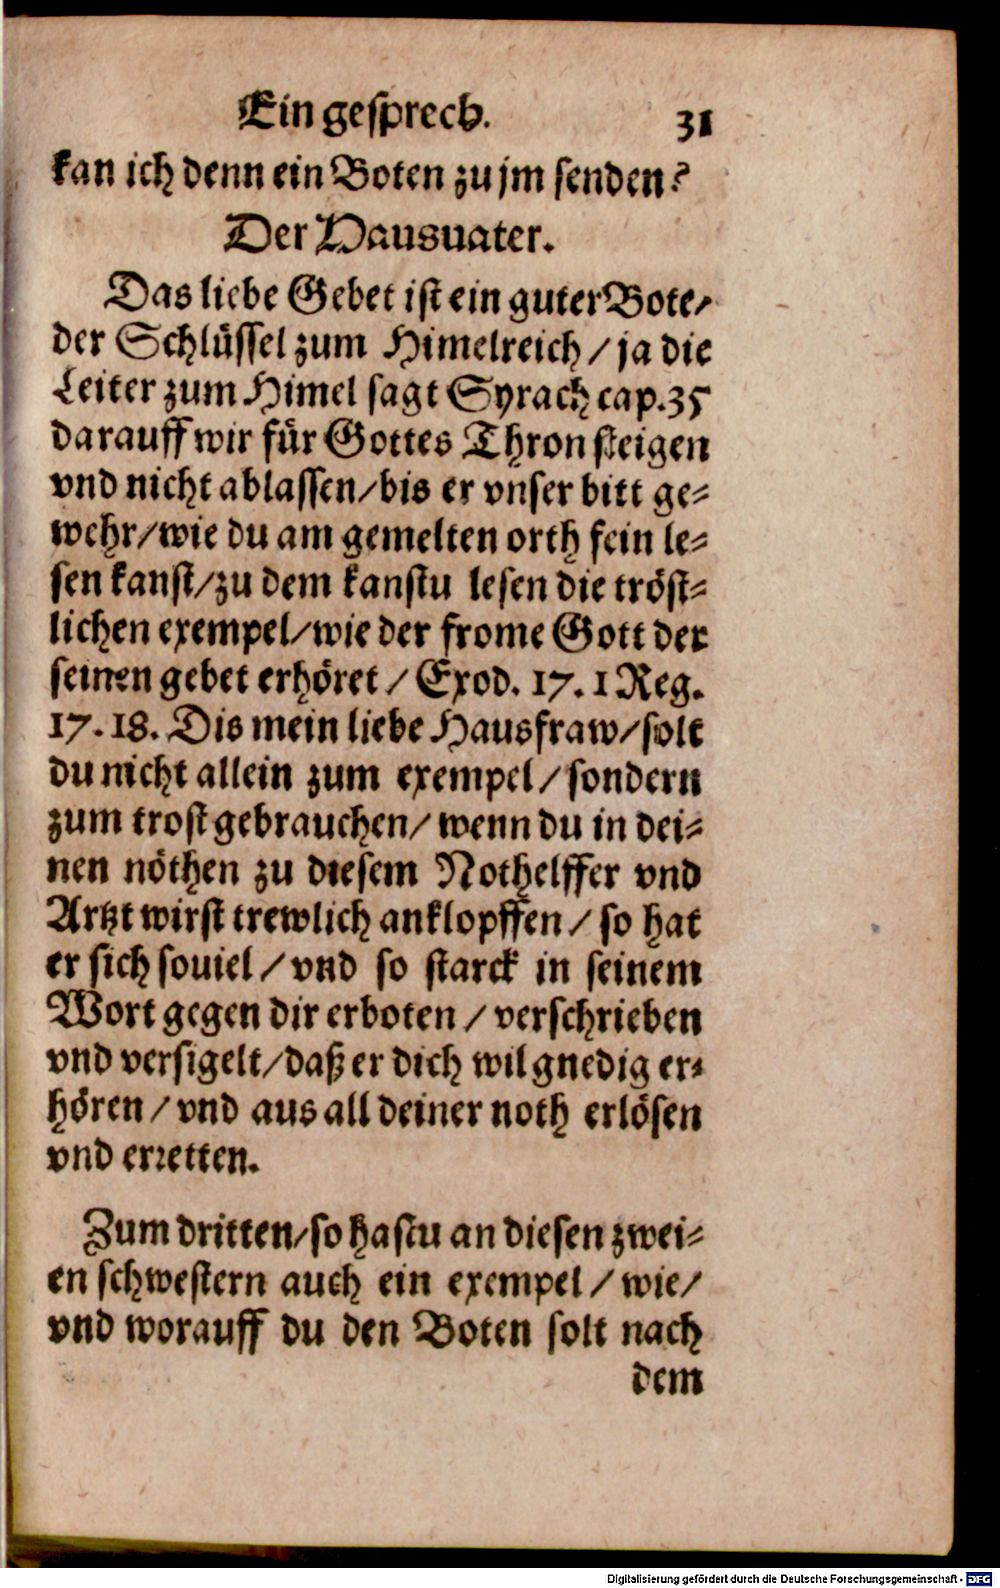 Ein gesprech. 31
kan ich denn ein Boten zu jm senden?
Der Hausuater.
Das liebe Gebet ist ein guter Bote/
der Schlüssel zum Himelreich / ja die
Leiter zum Himel sagt Syrach cap. 35
darauff wir für Gottes Thron steigen
vnd nicht ablassen/ bis er vnser bitt ge-
wehr/ wie du am gemelten orth fein le-
sen kanst/ zu dem kanstu lesen die tröst-
lichen exempel/ wie der frome Gott der
seinen gebet erhöret / Exod. 17. 1 Reg.
17. 18. Dis mein liebe Hausfraw/ solt
du nicht allein zum exempel / sondern
zum trost gebrauchen/ wenn du in dei-
nen nöthen zu diesem Nothelffer vnd
Artzt wirst trewlich anklopffen / so hat
er sich souiel / vnd so starck in seinem
Wort gegen dir erboten / verschrieben
vnd versigelt/ daß er dich wil gnedig er-
hören / vnd aus all deiner noth erlösen
vnd erretten.
Zum dritten/ so hastu an diesen zwei-
en schwestern auch ein exempel / wie/
vnd worauff du den Boten solt nach
dem
Digitalisierung gefördert durch die Deutsche Forschungsgemeinschaft - DFG